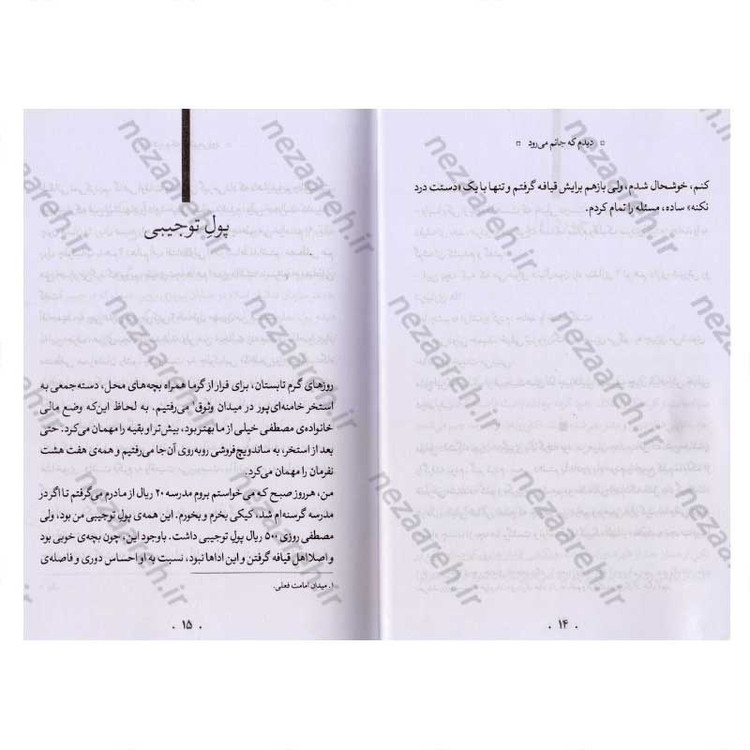 دیدم که جانم می‌رود
کنم، خوشحال شدم، ولی بازهم برایش قیافه گرفتم و تنها با یک «دستت درد
نکنه» ساده، مسئله را تمام کردم.
۱۴
پولِ توجیبی
روزهای گرم تابستان، برای فرار از گرما همراه بچه‌های محل، دسته‌جمعی به
استخر خامنه‌ای‌پور در میدان وثوق۱ می‌رفتیم. به لحاظ این‌که وضع مالی
خانواده‌ی مصطفی خیلی از ما بهتر بود، بیش‌تر او بقیه را مهمان می‌کرد. حتی
بعد از استخر، به ساندویچ‌فروشی روبه‌روی آن‌جا می‌رفتیم و همه‌ی هفت هشت
نفرمان را مهمان می‌کرد.
من، هر روز صبح که می‌خواستم بروم مدرسه ۲۰ ریال از مادرم می‌گرفتم تا اگر در
مدرسه گرسنه‌ام شد، کیکی بخرم و بخورم. این همه‌ی پولِ توجیبی من بود، ولی
مصطفی روزی ۵۰۰ ریال پولِ توجیبی داشت. باوجود این، چون بچه‌ی خوبی بود
و اصلا اهلِ قیافه گرفتن و این اداها نبود، نسبت به او احساس دوری و فاصله‌ی
۱. میدان امامت فعلی.
۱۵
nezaareh.ir